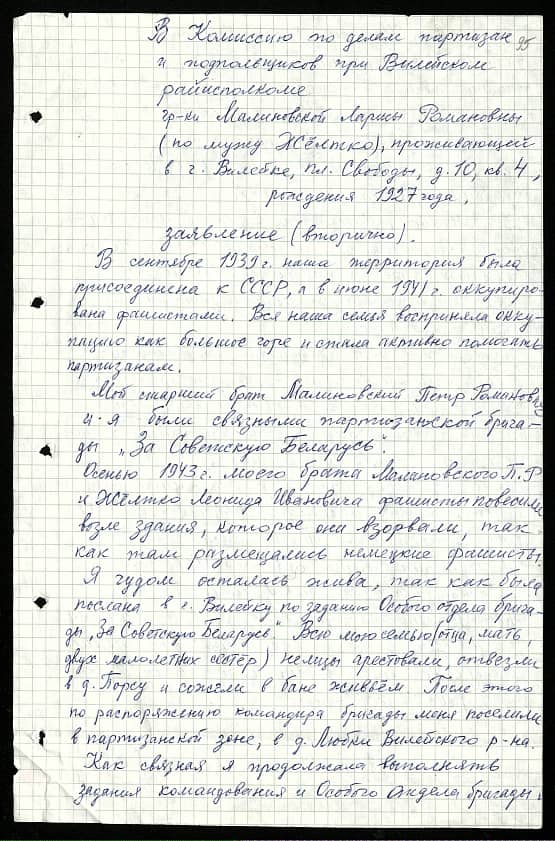 В Комиссию по делам партизан 95
и подпольщиков при Вилейском
райисполкоме
гр-ки Малиновской Ларисы Романовны
(по мужу Жёлтко), проживающей
в г. Вилейке, пл. Свободы, д. 10, кв. 4,
рождения 1927 года.
заявление (вторично).
В сентябре 1939 г. наша территория была
присоединена к СССР, а в июне 1941 г. оккупиро-
вана фашистами. Вся наша семья восприняла окку-
пацию как большое горе и стала активно помогать
партизанам.
Мой старший брат Малиновский Петр Романович
и я были связными партизанской брига-
ды „За Советскую Беларусь".
Осенью 1943 г. моего брата Малиновского П.Р
и Жёлтко Леонида Ивановича фашисты повесили
возле здания, которое они взорвали, так
как там размещались немецкие фашисты.
Я чудом осталась жива, так как была
послана в г. Вилейку по заданию Особого отдела брига-
ды „За Советскую Беларусь". Всю мою семью (отца, мать,
двух малолетних сестёр) немцы арестовали, отвезли
в д. Порсу и сожгли в бане живьём. После этого
по распоряжению командира бригады меня поселили
в партизанской зоне, в д. Любки Вилейского р-на.
Как связная я продолжала выполнять
задания командования и Особого отдела бригады.